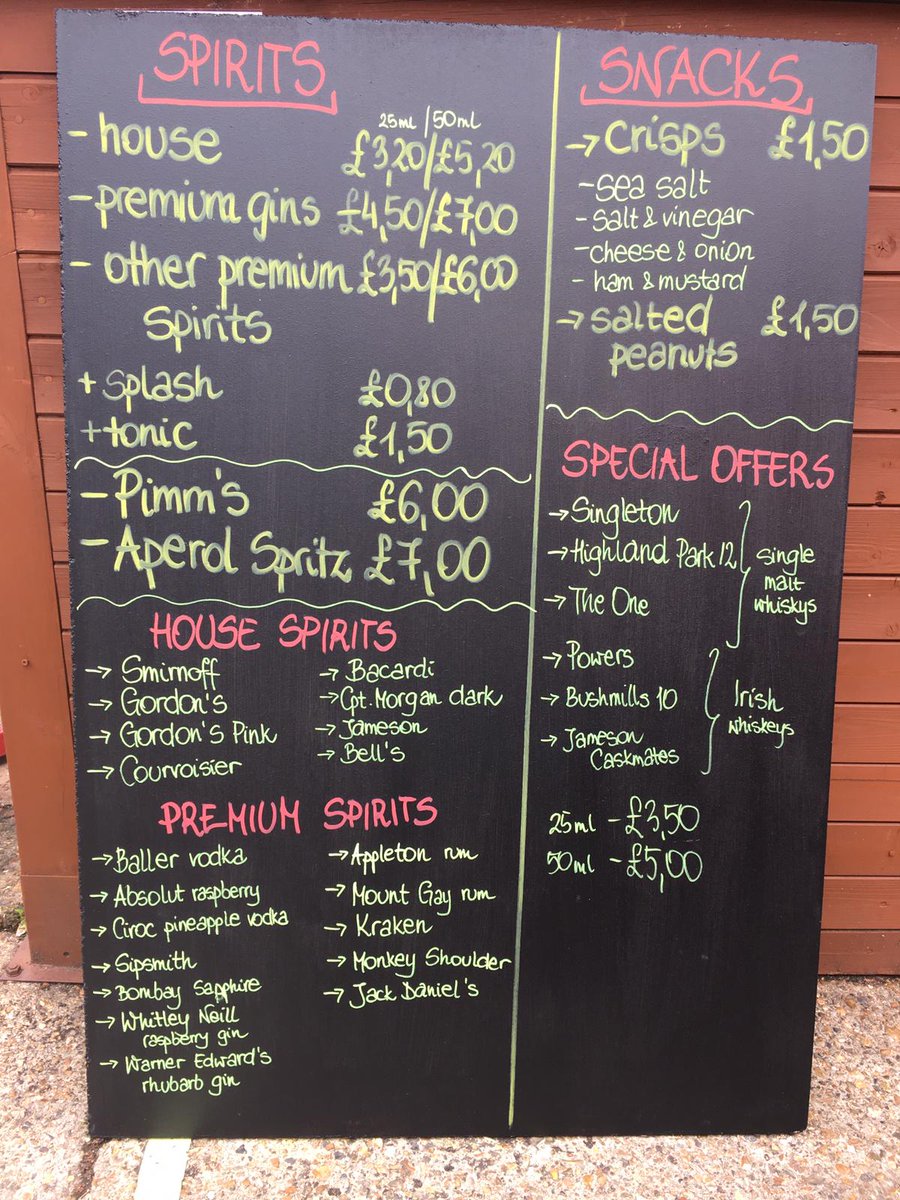 SPIRITS
25ml / 50ml
- house £3,20/£5,20
- premium gins £4,50/£7,00
- other premium £3,50/£6,00
spirits
+ splash £0,80
+ tonic £1,50
- Pimm's £6,00
- Aperol Spritz £7,00
HOUSE SPIRITS
→ Smirnoff
→ Gordon's
→ Gordon's Pink
→ Courvoisier
→ Bacardi
→ Cpt. Morgan dark
→ Jameson
→ Bell's
PREMIUM SPIRITS
→ Baller vodka
→ Absolut raspberry
→ Ciroc pineapple vodka
→ Sipsmith
→ Bombay Sapphire
→ Whitley Neill
raspberry gin
→ Warner Edward's
rhubarb gin
→ Appleton rum
→ Mount Gay rum
→ Kraken
→ Monkey Shoulder
→ Jack Daniel's
SNACKS
→ crisps £1,50
- sea salt
- salt & vinegar
- cheese & onion
- ham & mustard
→ salted £1,50
peanuts
SPECIAL OFFERS
→ Singleton
→ Highland Park 12
→ The One
single
malt
whiskys
→ Powers
→ Bushmills 10
→ Jameson
Caskmates
Irish
whiskeys
25ml - £3,50
50ml - £5,00